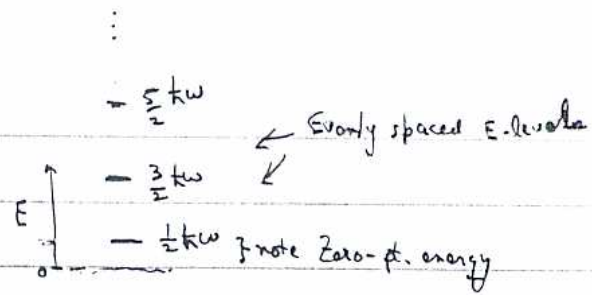 ⋮
– 5/2 ħω
← Evenly spaced E-levels
– 3/2 ħω
E
– 1/2 ħω } note Zero-pt. energy
0